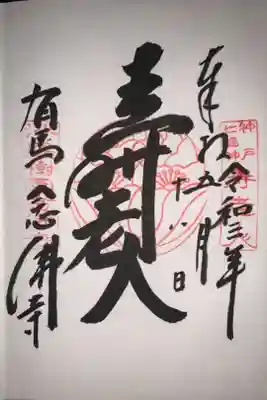 奉拝
令和三年
五月
十八日
寿老人
有馬念佛寺